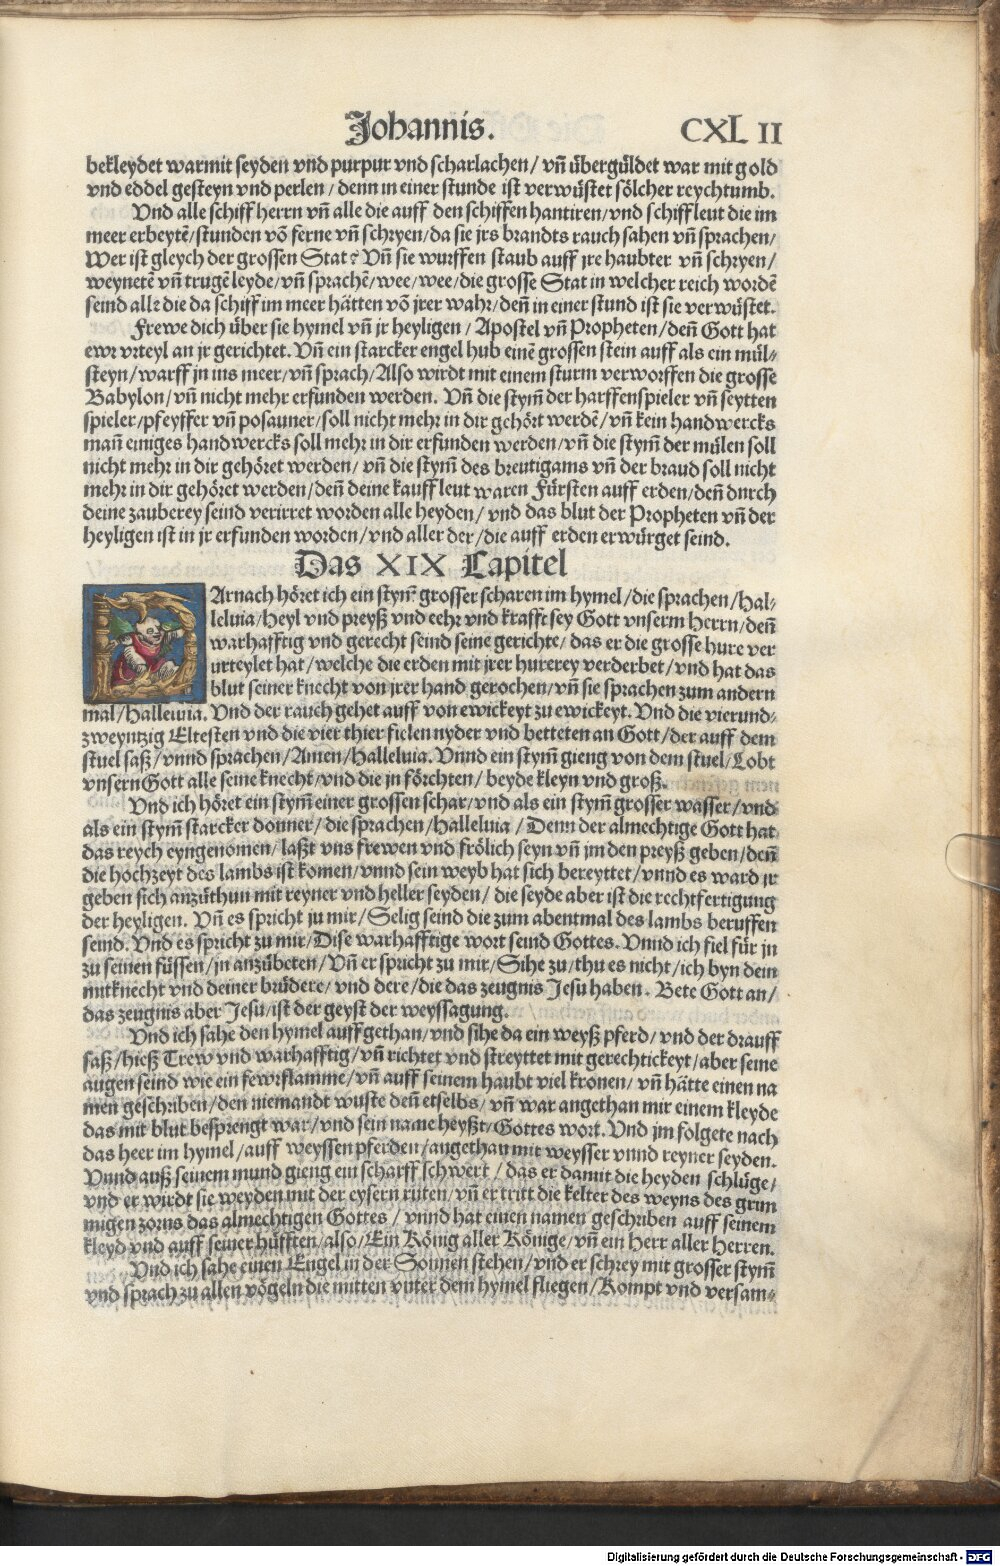 Johannis. CXL II
bekleydet warmit seyden vnd purpur vnd scharlachen / vñ übergüldet war mit gold
vnd eddel gesteyn vnd perlen / denn in einer stunde ist verwüstet sölcher reychtumb.
Vnd alle schiff herrn vñ alle die auff den schiffen hantiren / vnd schiffleut die im
meer erbeytẽ / stunden võ ferne vñ schryen / da sie jrs brandts rauch sahen vñ sprachen /
Wer ist gleych der grossen Stat? Vñ sie wurffen staub auff jre haubter vñ schryen /
weynetẽ vñ trugẽ leyde / vñ sprachẽ / wee / wee / die grosse Stat in welcher reich wordẽ
seind alle die da schiff im meer hätten võ jrer wahr / deñ in einer stund ist sie verwüstet.
Frewe dich über sie hymel vñ jr heyligen / Apostel vñ Propheten / deñ Gott hat
ewr vrteyl an jr gerichtet. Vñ ein starcker engel hub einẽ grossen stein auff als ein mül⸗
steyn / warff jn ins meer / vñ sprach / Also wirdt mit einem sturm verworffen die grosse
Babylon / vñ nicht mehr erfunden werden. Vñ die stym̃ der harffenspieler vñ seytten
spieler / pfeyffer vñ posauner / soll nicht mehr in dir gehört werdẽ / vñ kein handwercks
mañ einiges handwercks soll mehr in dir erfunden werden / vñ die stym̃ der mülen soll
nicht mehr in dir gehöret werden / vñ die stym̃ des breutigams vñ der braud soll nicht
mehr in dir gehöret werden / deñ deine kauffleut waren Fürsten auff erden / deñ durch
deine zauberey seind verirret worden alle heyden / vnd das blut der Propheten vñ der
heyligen ist in jr erfunden worden / vnd aller der / die auff erden erwürget seind.
Das XIX Capitel
DArnach höret ich ein stym̃ grosser scharen im hymel / die sprachen / Hal⸗
leluia / Heyl vnd preyß vnd eehr vnd krafft sey Gott vnserm Herrn / deñ
warhafftig vnd gerecht seind seine gerichte / das er die grosse hure ver
urteylet hat / welche die erden mit jrer hurerey verderbet / vnd hat das
blut seiner knecht von jrer hand gerochen / vñ sie sprachen zum andern
mal / Halleluia. Vnd der rauch gehet auff von ewickeyt zu ewickeyt. Vnd die vierund⸗
zweyntzig Eltesten vnd die vier thier fielen nyder vnd betteten an Gott / der auff dem
stuel saß / vnnd sprachen / Amen / Halleluia. Vnnd ein stym̃ gieng von dem stuel / Lobt
vnsern Gott alle seine knecht / vnd die jn förchten / beyde kleyn vnd groß.
Vnd ich höret ein stym̃ einer grossen schar / vnd als ein stym̃ grosser wasser / vnd
als ein stym̃ starcker donner / die sprachen / Halleluia / Denn der almechtige Gott hat
das reych eyngenomen / laßt vns frewen vnd frölich seyn vñ jm den preyß geben / deñ
die hochzeyt des lambs ist komen / vnnd sein weyb hat sich bereyttet / vnnd es ward jr
geben sich anzüthun mit reyner vnd heller seyden / die seyde aber ist die rechtfertigung
der heyligen. Vñ es spricht zu mir / Selig seind die zum abentmal des lambs beruffen
seind. Vnd es spricht zu mir / Dise warhafftige wort seind Gottes. Vnnd ich fiel für jn
zu seinen füssen / jn anzübeten / Vñ er spricht zu mir / Sihe zu / thu es nicht / ich byn dein
mitknecht vnd deiner brüdere / vnd dere / die das zeugnis Jesu haben. Bete Gott an /
das zeugnis aber Jesu / ist der geyst der weyssagung.
Vnd ich sahe den hymel auffgethan / vnd sihe da ein weyß pferd / vnd der drauff
saß / hieß Trew vnd warhafftig / vñ richtet vnd streyttet mit gerechtickeyt / aber seine
augen seind wie ein fewrflamme / vñ auff seinem haubt viel kronen / vñ hätte einen na
men geschriben / den niemandt wuste deñ etselbs / vñ war angethan mir einem kleyde
das mit blut besprengt war / vnd sein name heyßt / Gottes wort. Vnd jm folgete nach
das heer im hymel / auff weyssen pferden / angethan mit weysser vnnd reyner seyden.
Vnnd auß seinem mund gieng ein scharff schwert / das er damit die heyden schlüge /
vnd er wirdt sie weyden mit der eysern rüten / vñ er tritt die kelter des weyns des grim
migen zorns das almechtigen Gottes / vnnd hat einen namen geschriben auff seinem
kleyd vnd auff seiner hüfften / also / Ein König aller Könige / vñ ein Herr aller Herren.
Vnd ich sahe einen Engel in der Sonnen stehen / vnd er schrey mit grosser stym̃
vnd sprach zu allen vögeln die mitten vnter dem hymel fliegen / Kompt vnd versam⸗
Digitalisierung gefördert durch die Deutsche Forschungsgemeinschaft - DFG